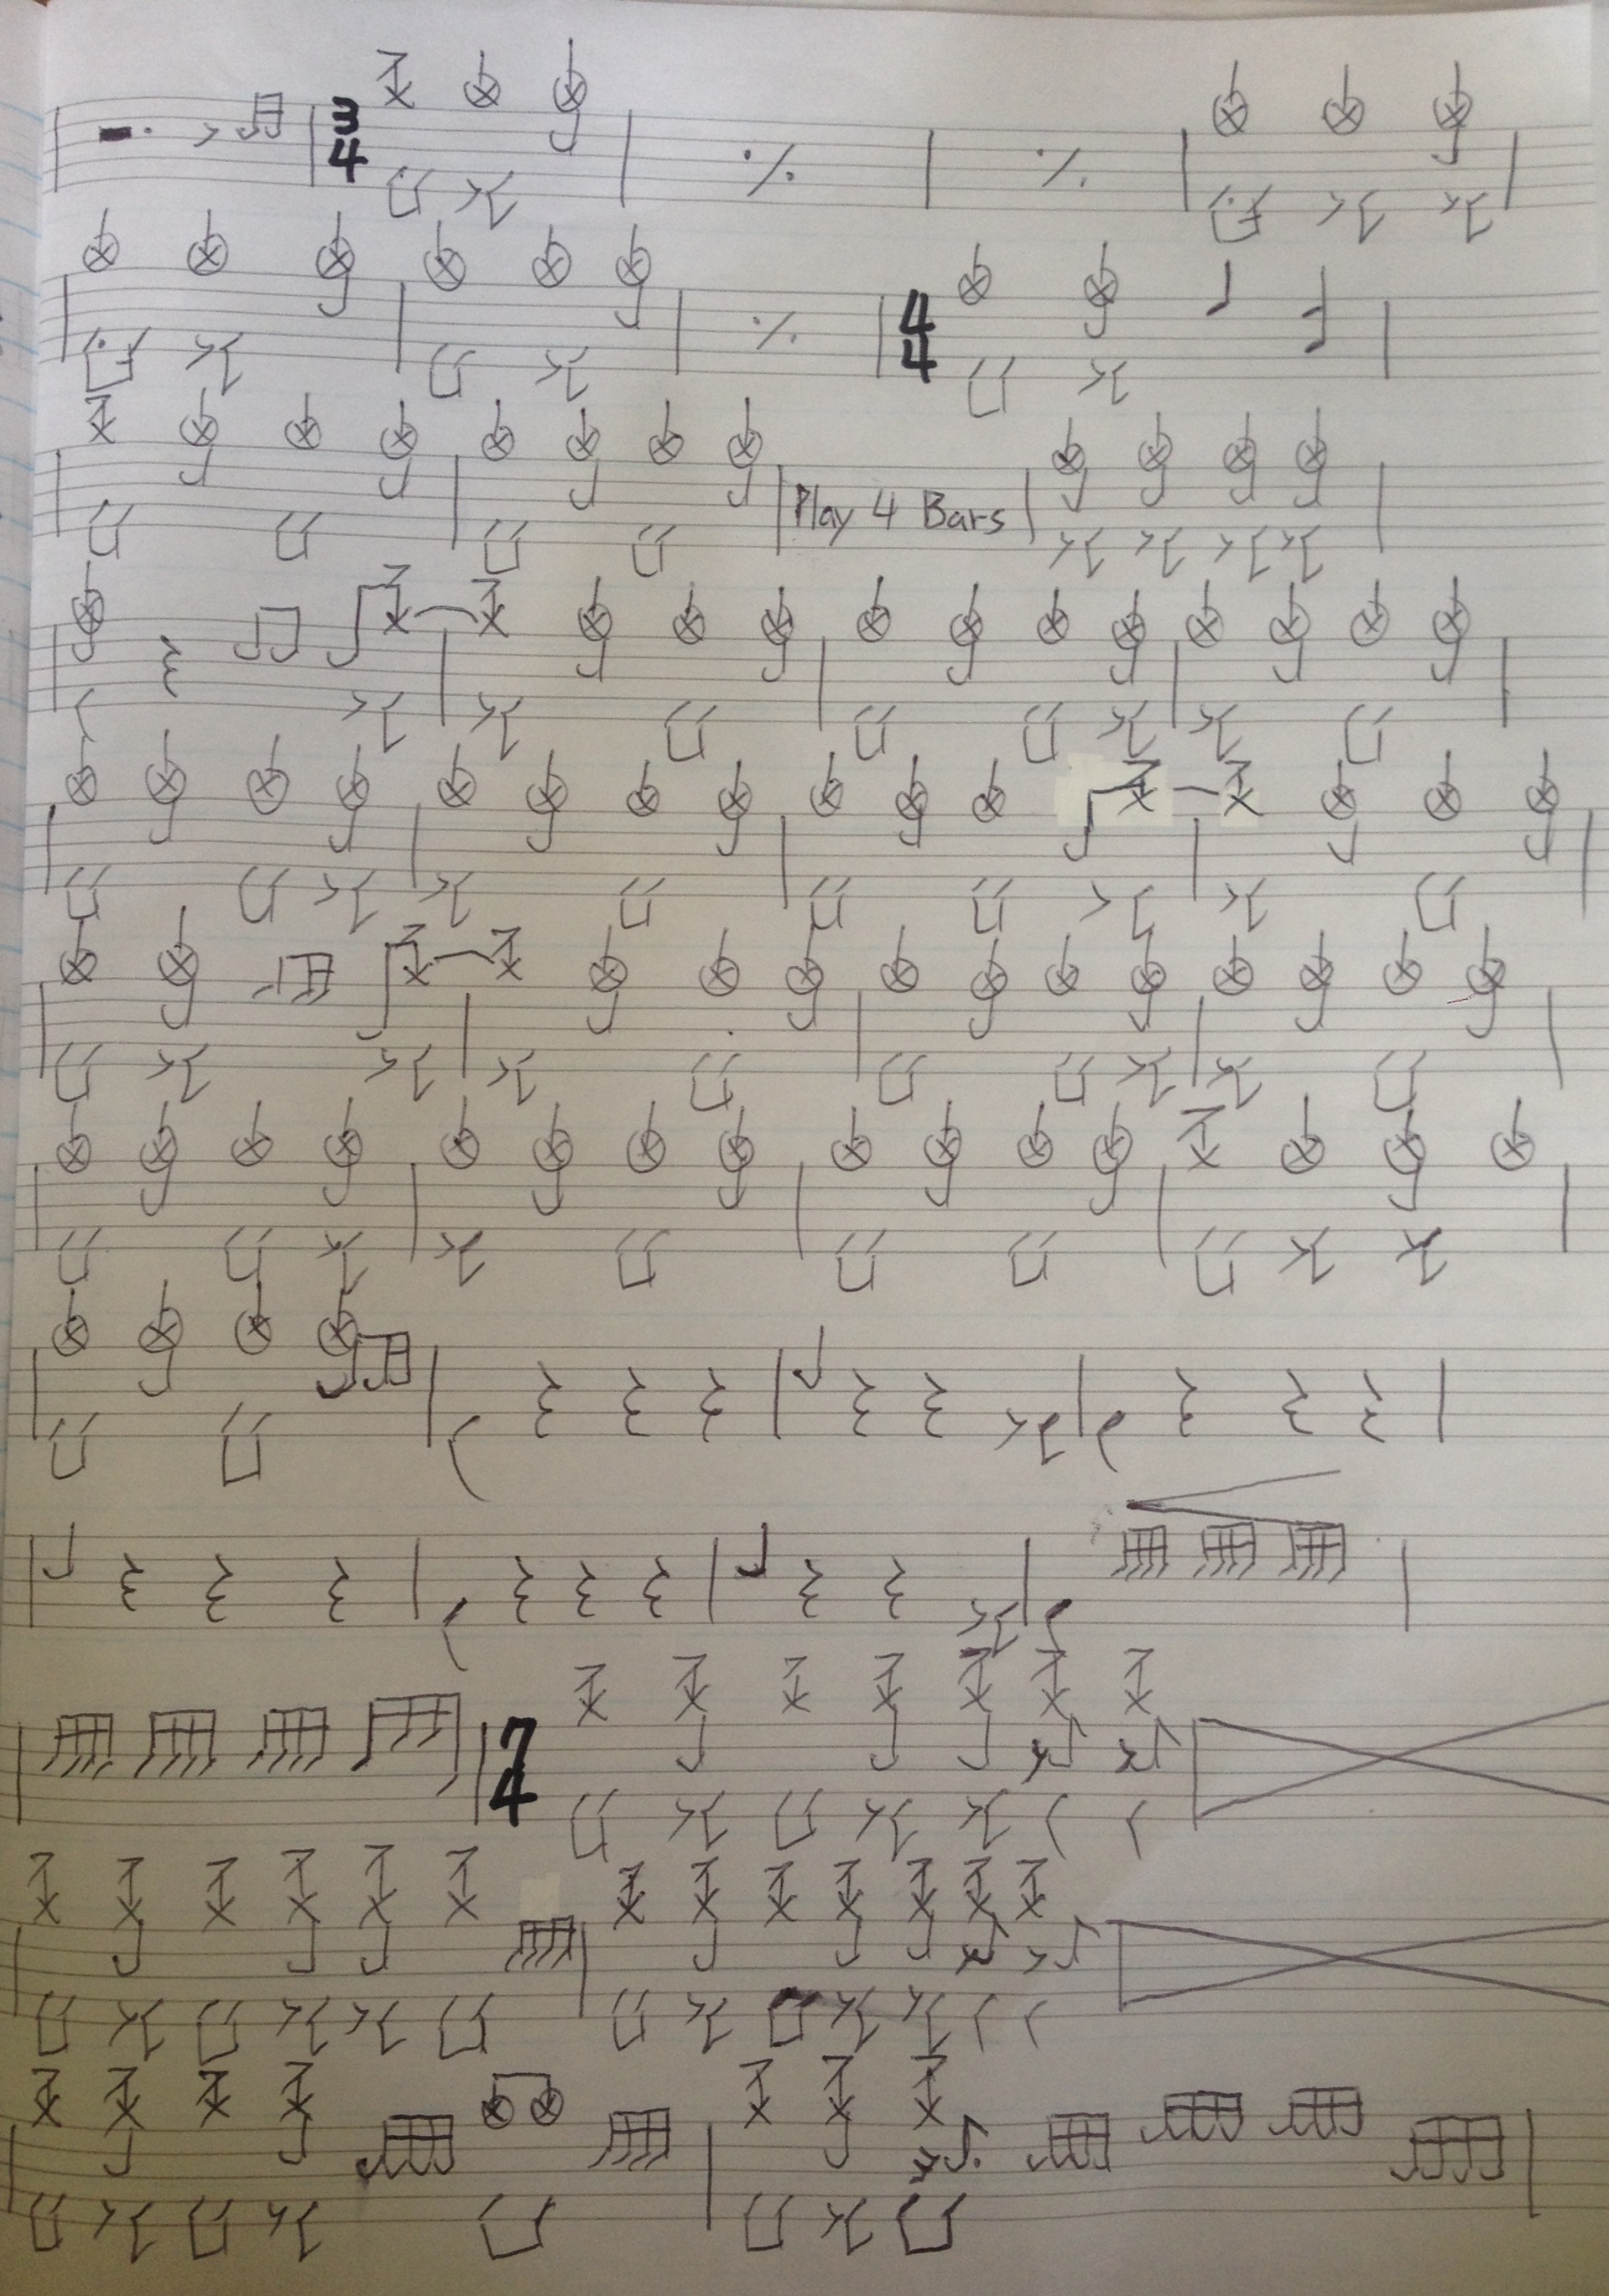 3
4
4
4
Play 4 Bars
7
4